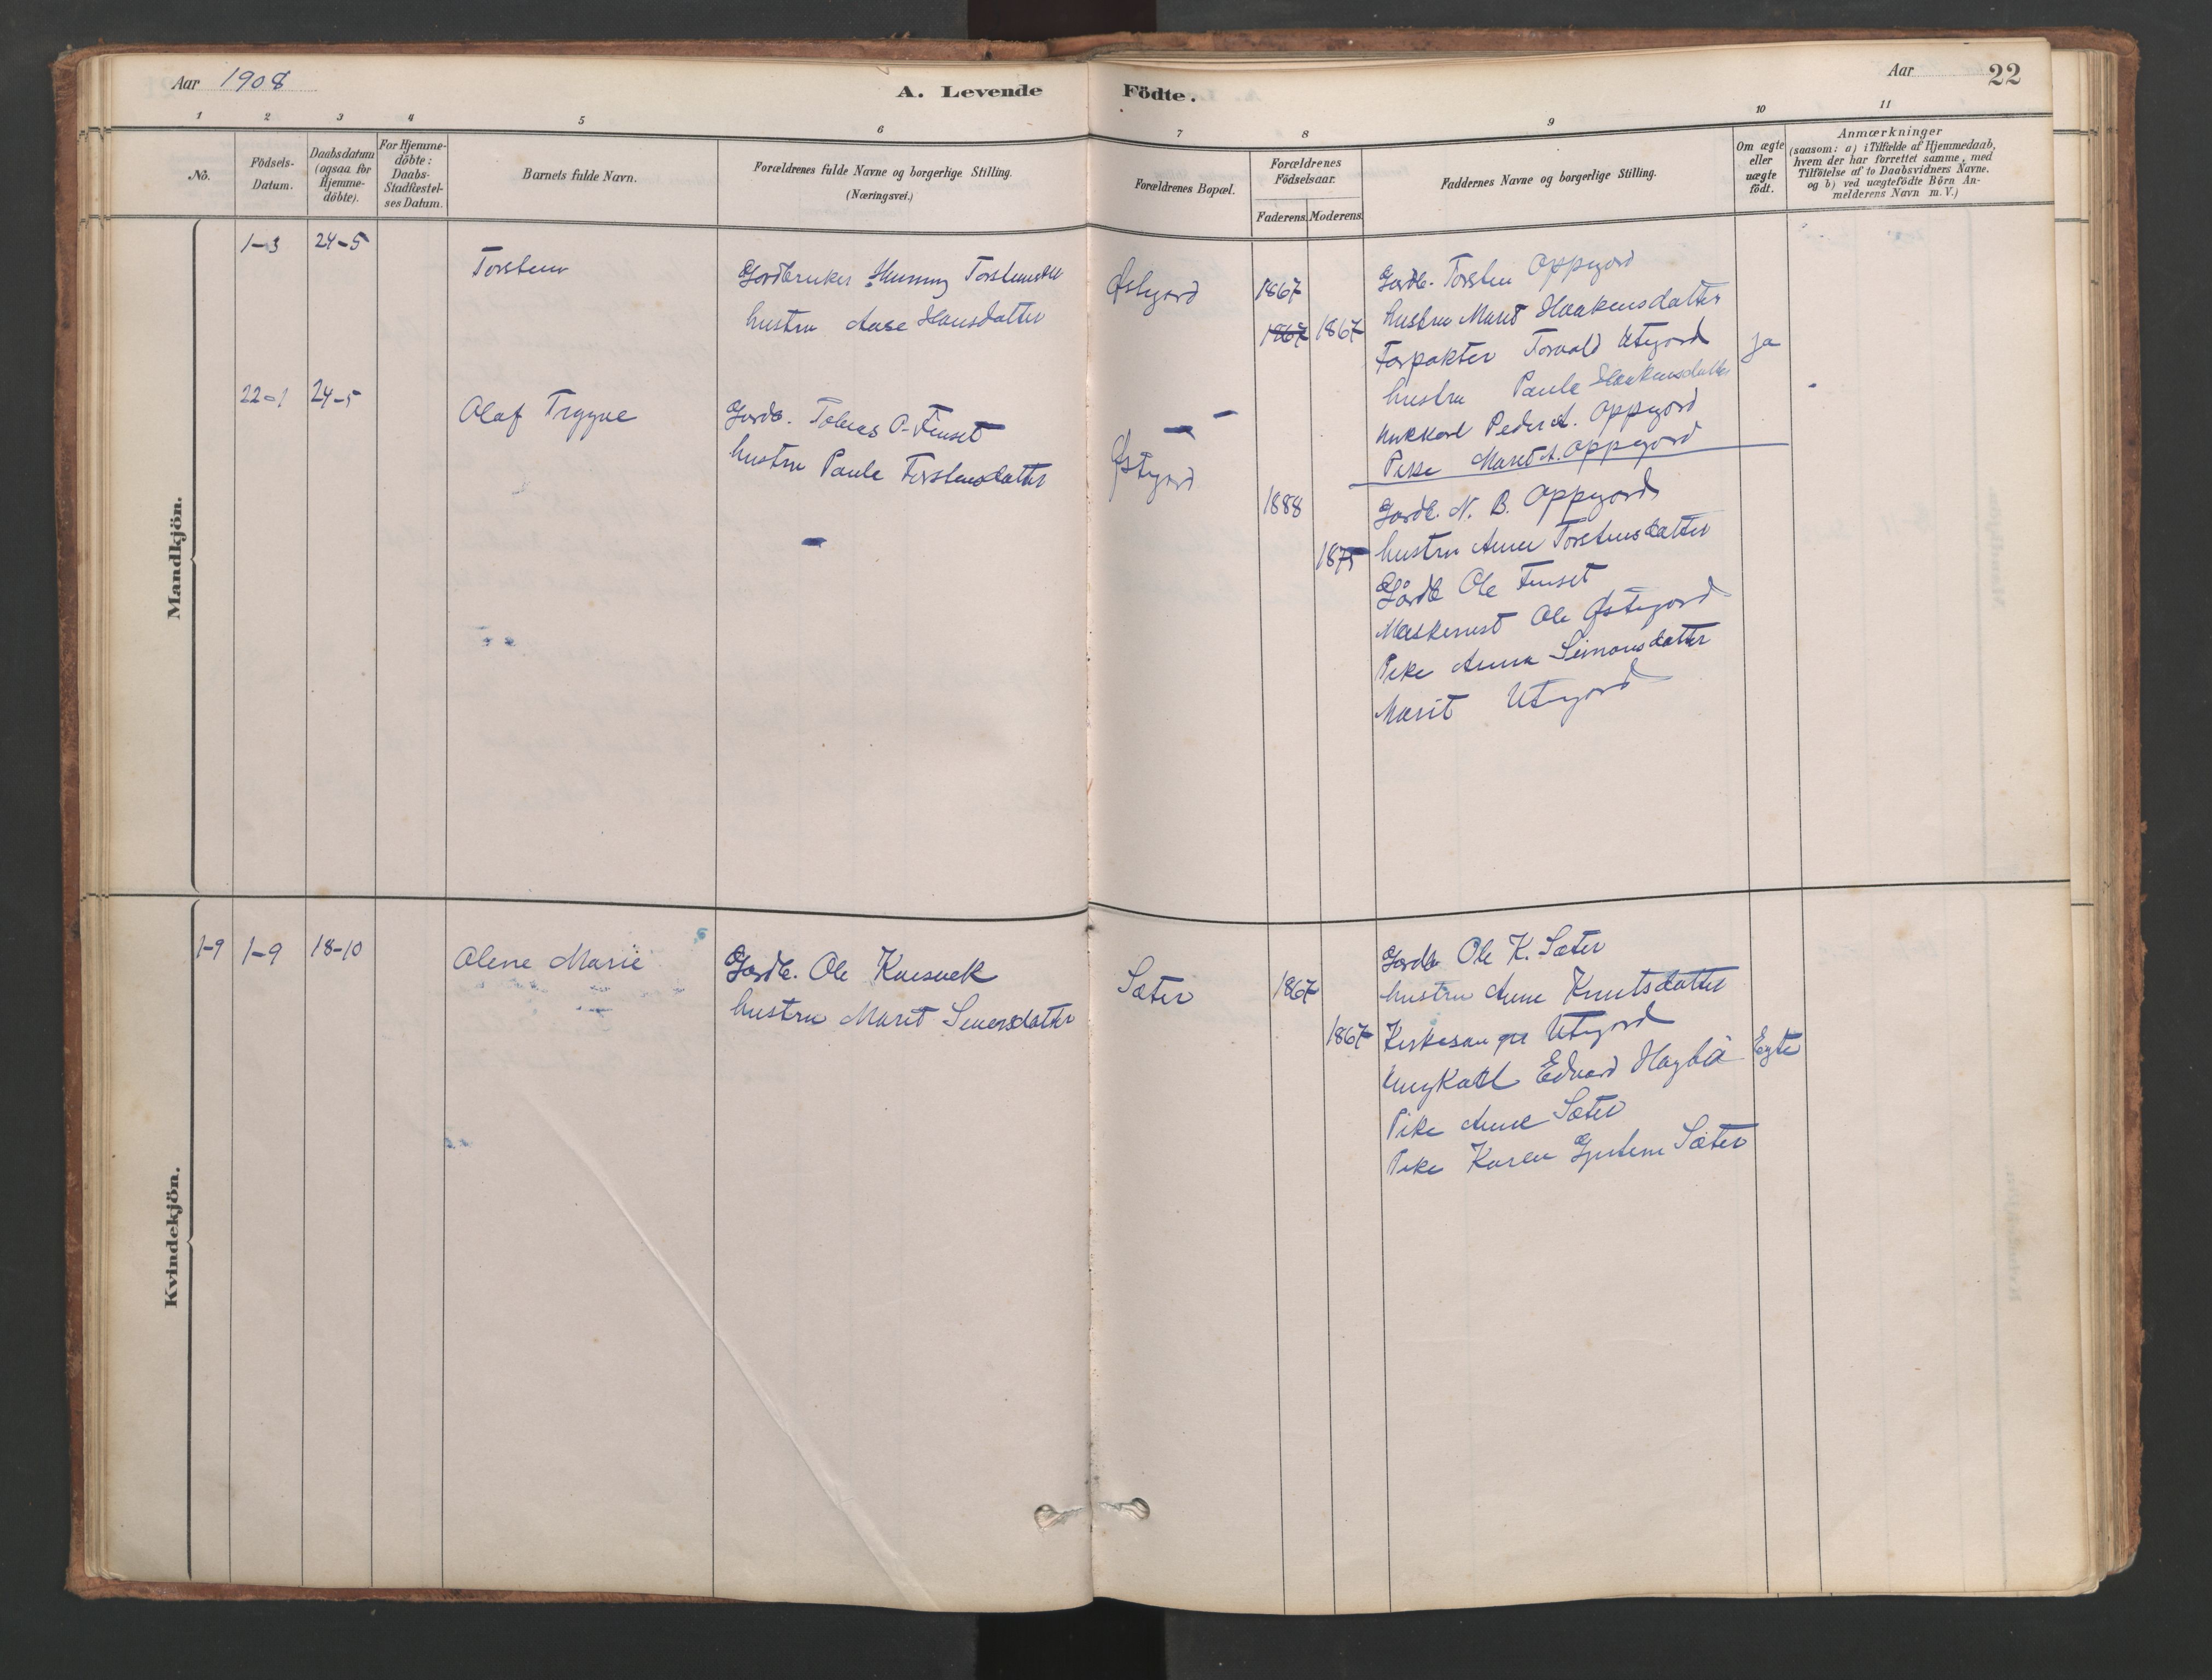 Aar 1908
A. Levende Födte.
Aar
22
1 2 3 4 5 6 7 8 9 10 11
No.
Födsels-Datum.
Daabsdatum (ogsaa for Hjemme-döbte).
For Hjemme-döbte: Daabs-Stadfæstel-ses Datum.
Barnets fulde Navn.
Forældrenes fulde Navne og borgerlige Stilling.
(Næringsvei.)
Forældrenes Bopæl.
Forældrenes Födselsaar.
Faderens. Moderens.
Faddernes Navne og borgerlige Stilling.
Om ægte eller uægte födt.
Anmærkninger
(saasom: a) i Tilfælde af Hjemmedaab,
hvem der har forrettet samme, med
Tilföielse af to Daabsvidners Navne.
og b) ved uægtefödte Börn An-
melderens Navn m. V.)
Mandkjön.
1-3 24-5
Torstein
Gordbruker Torstensen
hustru Aase Hansdatter
Østgord
1867
1867 1867
Gordb. Torsten Oppgord
hustru Marit Haakensdatter
Forpakter Torvald Utgord
hustru Paule Haakensdatter
Peder A. Oppgord
Pike Marit A. Oppgord
ja
22-1 24-5
Olaf Trygve
Gordb. Tobias P. Finset
hustru Paule Torstensdatter
Østgord
1888
1875
Gordb. N. B. Oppgord
hustru Anne Torstensdatter
Gårdb Ole Finset
Maskinist Ole Østigord
Pike Anna Simonsdatter
Marit Utigord
Kvindekjön.
1-9 1-9 18-10
Olene Marie
Gordb. Ole
hustru Marit Seversdatter
Sæter
1867
1867
Gordb Ole K. Sæter
hustru Anne Knutsdatter
Kirkesanger Utigord
Ungkarl Edvard Hagbø
Pike Anne Sæter
Pike Karen Sæter
Egte